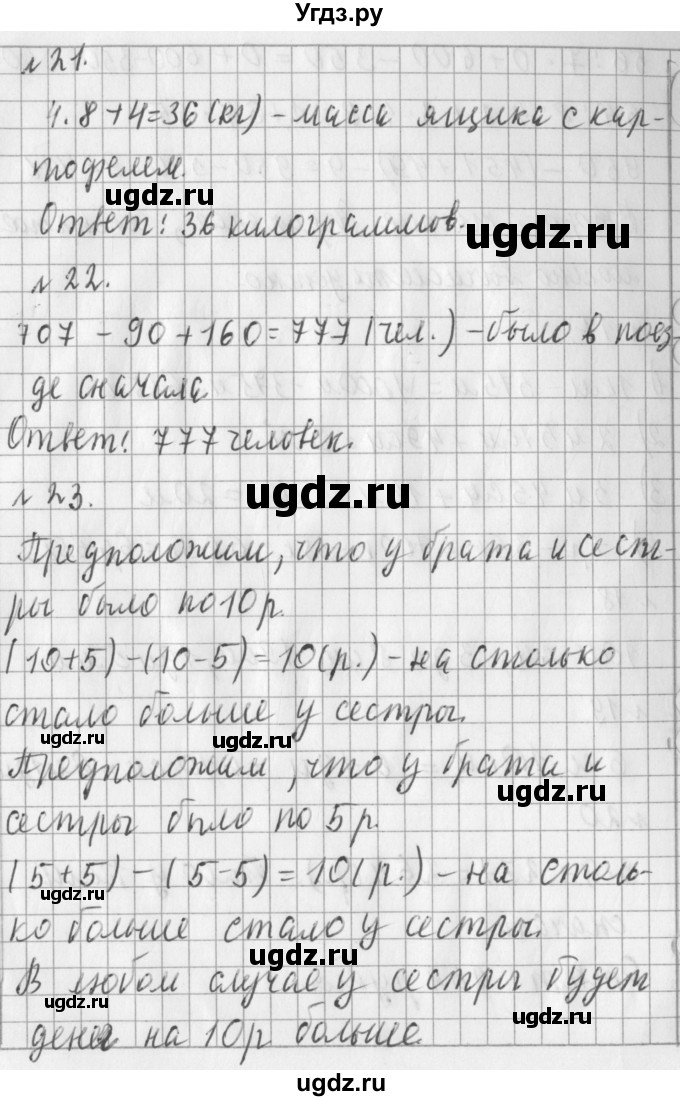 Угдз.ру
№21.
4·8+4=36(кг) - масса ящика с кар-
тофелем.
ugdz.ru
Ответ: 36 килограммов.
ugdz.ru
№22.
707 - 90 + 160 = 777 (чел.) - было в поез-
де сначала
Ответ: 777 человек.
№23.
ugdz.ru
Предположим, что у брата и сест-
ры было по 10 р.
(10+5) - (10-5) = 10(р.) - на столько
стало больше у сестры.
ugdz.ru
ugdz.ru
Предположим, что у брата и
сестры было по 5 р.
ugdz.ru
(5+5) - (5-5) = 10(р.) - на столь-
ugdz.ru
ко больше стало у сестры.
ugdz.ru
В любом случае у сестры будет
ugdz.ru
ugdz.ru
денег на 10 р больше.
ugdz.ru